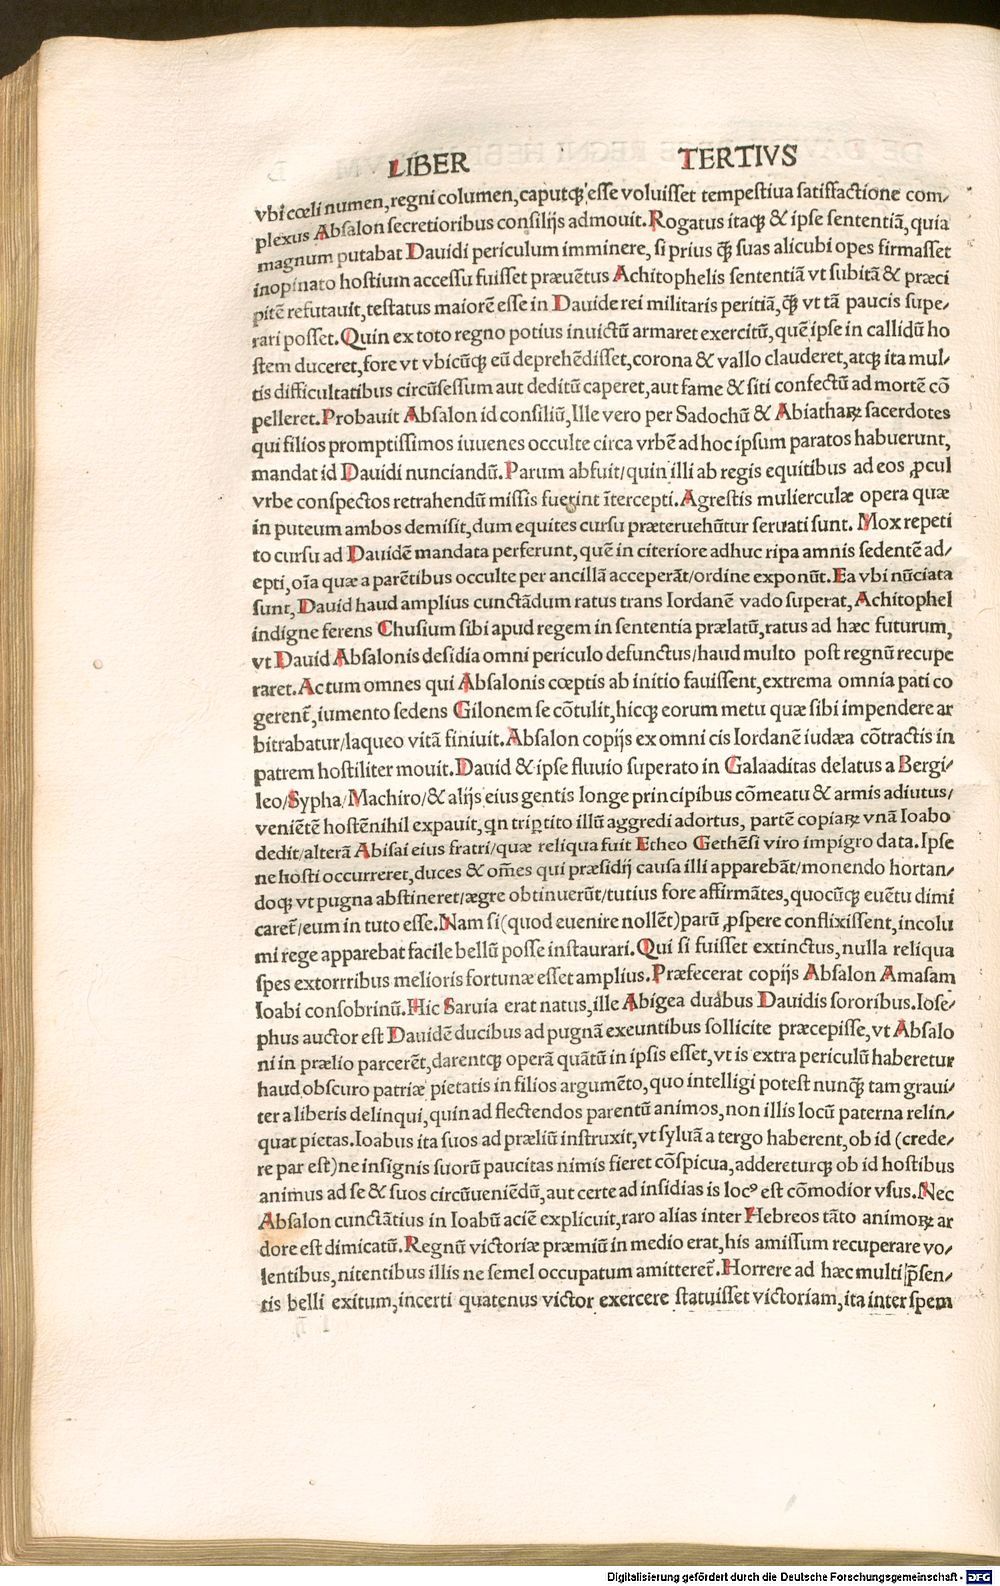 LIBER TERTIVS
vbi cœli numen, regni columen, caputqȝ esse voluisset tempestiua satisfactione com⸗
plexus Absalon secretioribus consilijs admouit. Rogatus itaqȝ & ipse sententiā, quia
magnum putabat Dauidi periculum imminere, si prius qȝ̄ suas alicubi opes firmasset
inopinato hostium accessu fuisset præuētus Achitophelis sententiā vt subitā & præci
pitē refutauit, testatus maiorē esse in Dauide rei militaris peritiā, qȝ̄ vt tā paucis supe⸗
rari posset. Quin ex toto regno potius inuictū armaret exercitū, quē ipse in callidū ho
stem duceret, fore vt vbicūqȝ eū deprehēdisset, corona & vallo clauderet, atqȝ ita mul⸗
tis difficultatibus circūsessum aut deditū caperet, aut fame & siti confectū ad mortē cō
pelleret. Probauit Absalon id consiliū, Ille vero per Sadochū & Abiathaꝝ sacerdotes
qui filios promptissimos iuuenes occulte circa vrbē ad hoc ipsum paratos habuerunt,
mandat id Dauidi nunciandū. Parum abfuit/quin illi ab regis equitibus ad eos ꝓcul
vrbe conspectos retrahendū missis fuerint ītercepti. Agrestis mulierculæ opera quæ
in puteum ambos demisit, dum equites cursu præteruehūtur seruati sunt. Mox repeti
to cursu ad Dauidē mandata perferunt, quē in citeriore adhuc ripa amnis sedentē ad⸗
epti, oīa quæ a parētibus occulte per ancillā acceperāt/ordine exponūt. Ea vbi nūciata
sunt, Dauid haud amplius cunctādum ratus trans Iordanē vado superat, Achitophel
indigne ferens Chusium sibi apud regem in sententia prælatū, ratus ad hæc futurum,
vt Dauid Absalonis desidia omni periculo defunctus/haud multo post regnū recupe
raret. Actum omnes qui Absalonis cœptis ab initio fauissent, extrema omnia pati co
gerent̄, iumento sedens Gilonem se cōtulit, hicqȝ eorum metu quæ sibi impendere ar
bitrabatur/laqueo vitā finiuit. Absalon copijs ex omni cis Iordanē iudæa cōtractis in
patrem hostiliter mouit. Dauid & ipse fluuio superato in Galaaditas delatus a Bergi⸗
leo/Sypha/Machiro/& alijs eius gentis longe principibus cōmeatu & armis adiutus/
veniētē hostē nihil expauit, qn tripꝉtito illū aggredi adortus, partē copiaꝝ vnā Ioabo
dedit/alterā Abisai eius fratri/quæ reliqua fuit Etheo Gethēsi viro impigro data. Ipse
ne hosti occurreret, duces & om̄es qui præsidij causa illi apparebāt/monendo hortan⸗
doqȝ vt pugna abstineret/ægre obtinuerūt/tutius fore affirmātes, quocūqȝ euētu dimi
caret̄/eum in tuto esse. Nam si (quod euenire nollēt) parū ꝓspere conflixissent, incolu
mi rege apparebat facile bellū posse instaurari. Qui si fuisset extinctus, nulla reliqua
spes extorrribus melioris fortunæ esset amplius. Præfecerat copijs Absalon Amasam
Ioabi consobrinū. Hic Saruia erat natus, ille Abigea duabus Dauidis sororibus. Iose⸗
phus auctor est Dauidē ducibus ad pugnā exeuntibus sollicite præcepisse, vt Absalo
ni in prælio parcerēt, darentqȝ operā quātū in ipsis esset, vt is extra periculū haberetur
haud obscuro patriæ pietatis in filios argumēto, quo intelligi potest nunqȝ̄ tam graui⸗
ter a liberis delinqui, quin ad flectendos parentū animos, non illis locū paterna relin⸗
quat pietas. Ioabus ita suos ad præliū instruxit, vt syluā a tergo haberent, ob id (crede⸗
re par est) ne insignis suorū paucitas nimis fieret cōspicua, addereturqȝ ob id hostibus
animus ad se & suos circūueniēdū, aut certe ad insidias is locꝰ est cōmodior vsus. Nec
Absalon cunctātius in Ioabū aciē explicuit, raro alias inter Hebreos tāto animoꝝ ar
dore est dimicatū. Regnū victoriæ præmiū in medio erat, his amissum recuperare vo⸗
lentibus, nitentibus illis ne semel occupatum amitteret̄. Horrere ad hæc multi p̄sen⸗
tis belli exitum, incerti quatenus victor exercere statuisset victoriam, ita inter spem
Digitalisierung gefördert durch die Deutsche Forschungsgemeinschaft - DFG